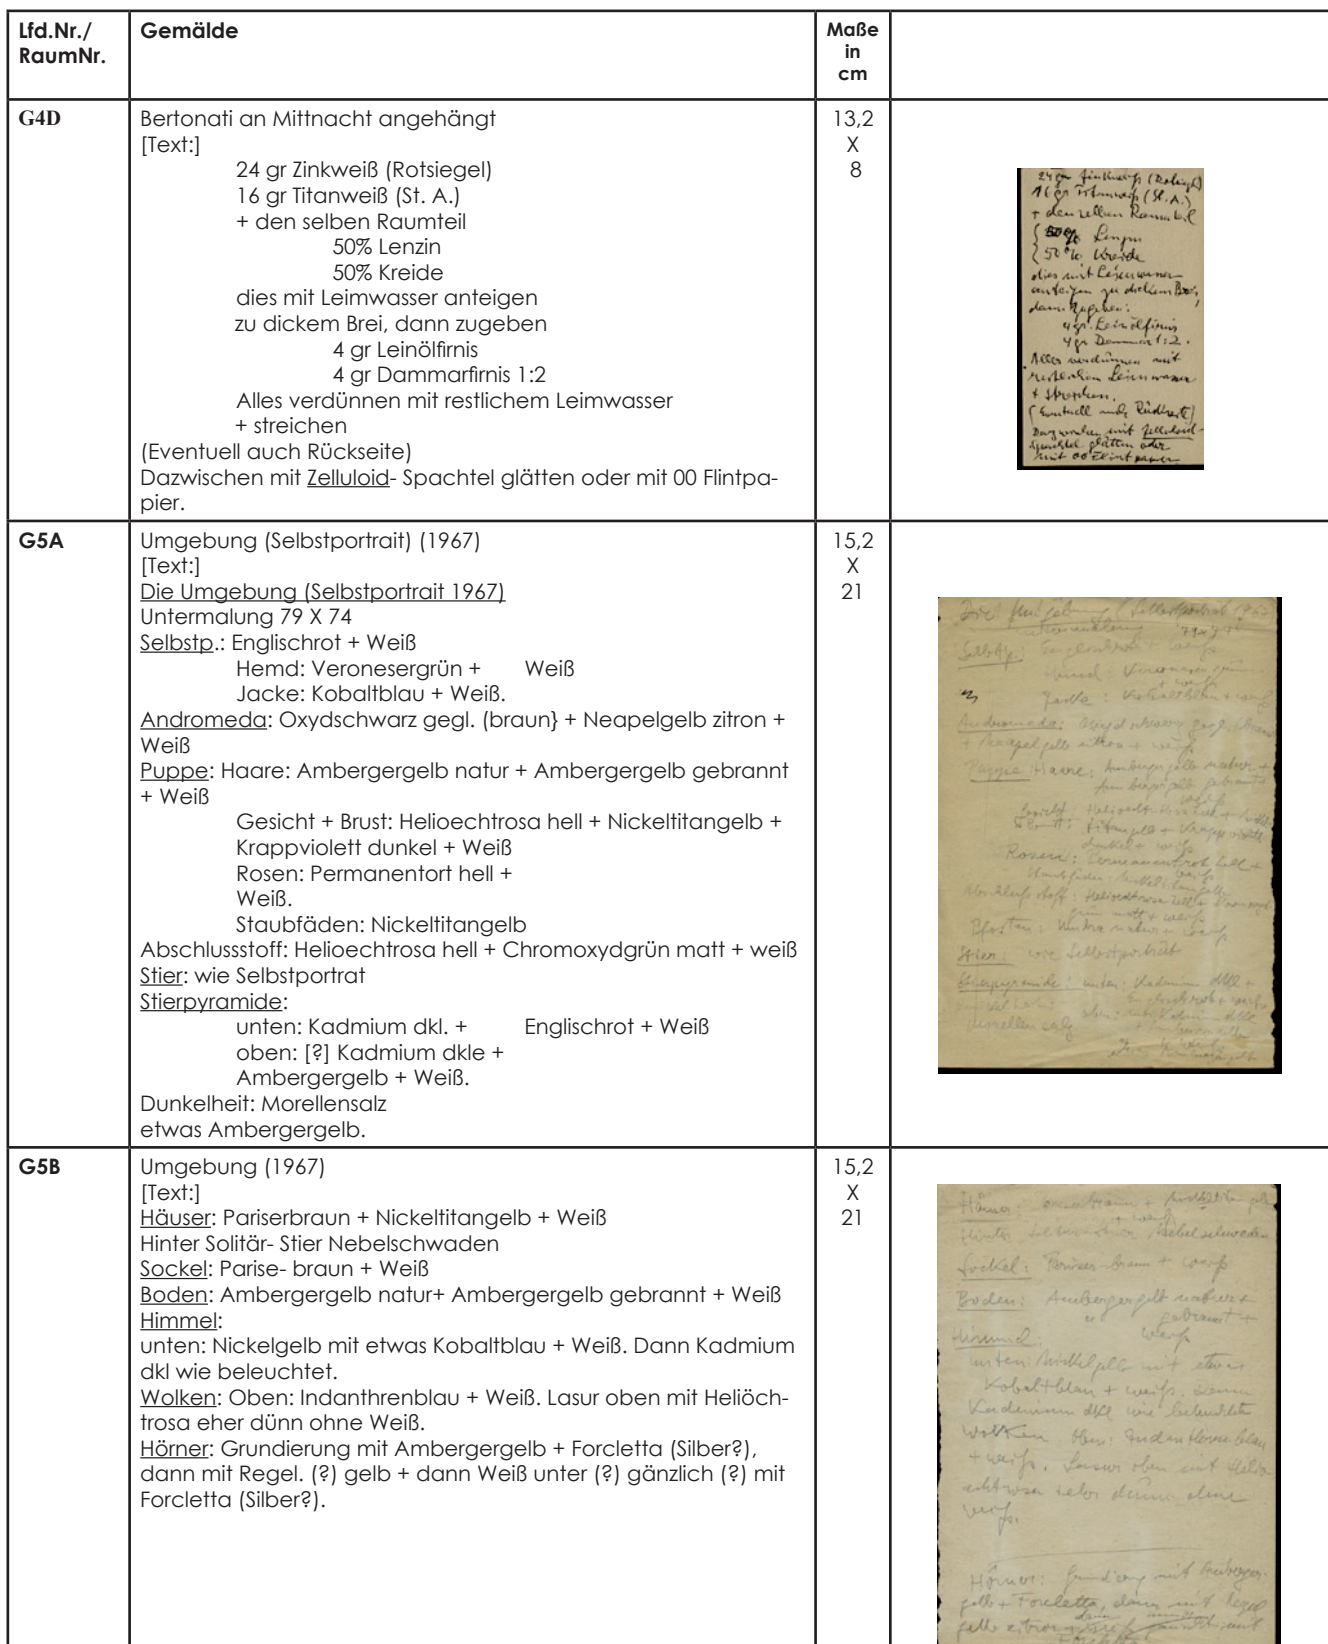 Lfd.Nr./
RaumNr.
Gemälde
Maße
in
cm
G4D
Bertonati an Mittnacht angehängt
[Text:]
24 gr Zinkweiß (Rotsiegel)
16 gr Titanweiß (St. A.)
+ den selben Raumteil
50% Lenzin
50% Kreide
dies mit Leimwasser anteigen
zu dickem Brei, dann zugeben
4 gr Leinölfirnis
4 gr Dammarfirnis 1:2
Alles verdünnen mit restlichem Leimwasser
+ streichen
(Eventuell auch Rückseite)
Dazwischen mit Zelluloid- Spachtel glätten oder mit 00 Flintpa-
pier.
13,2
X
8
24 gr Zinkweiß (Rotsiegel)
16 gr Titanweiß (St. A.)
+ den selben Raumteil
50% Lenzin
50% Kreide
dies mit Leimwasser
anteigen zu dickem Brei,
dann zugeben:
4 gr. Leinölfirnis
4 gr Dammar 1:2.
Alles verdünnen mit
restlichem Leimwasser
+ streichen.
(Eventuell auch Rückseite)
Dazwischen mit Zelluloid-
spachtel glätten oder
mit 00 Flintpapier
G5A
Umgebung (Selbstportrait) (1967)
[Text:]
Die Umgebung (Selbstportrait 1967)
Untermalung 79 X 74
Selbstp.: Englischrot + Weiß
Hemd: Veronesergrün + Weiß
Jacke: Kobaltblau + Weiß.
Andromeda: Oxydschwarz gegl. (braun} + Neapelgelb zitron +
Weiß
Puppe: Haare: Ambergergelb natur + Ambergergelb gebrannt
+ Weiß
Gesicht + Brust: Helioechtrosa hell + Nickeltitangelb +
Krappviolett dunkel + Weiß
Rosen: Permanentort hell +
Weiß.
Staubfäden: Nickeltitangelb
Abschlussstoff: Helioechtrosa hell + Chromoxydgrün matt + weiß
Stier: wie Selbstportrat
Stierpyramide:
unten: Kadmium dkl. + Englischrot + Weiß
oben: [?] Kadmium dkle +
Ambergergelb + Weiß.
Dunkelheit: Morellensalz
etwas Ambergergelb.
15,2
X
21
Selbstp: Englischrot + weiß
Jacke: Kobaltblau + weiß
Stier: wie Selbstportrait
G5B
Umgebung (1967)
[Text:]
Häuser: Pariserbraun + Nickeltitangelb + Weiß
Hinter Solitär- Stier Nebelschwaden
Sockel: Parise- braun + Weiß
Boden: Ambergergelb natur+ Ambergergelb gebrannt + Weiß
Himmel:
unten: Nickelgelb mit etwas Kobaltblau + Weiß. Dann Kadmium
dkl wie beleuchtet.
Wolken: Oben: Indanthrenblau + Weiß. Lasur oben mit Heliöch-
trosa eher dünn ohne Weiß.
Hörner: Grundierung mit Ambergergelb + Forcletta (Silber?),
dann mit Regel. (?) gelb + dann Weiß unter (?) gänzlich (?) mit
Forcletta (Silber?).
15,2
X
21
Sockel: Pariser braun + weiß
Boden: Ambergergelb natur +
" gebrannt +
Himmel: weiß
unten: Nickelgelb mit etwas
Kobaltblau + weiß. Dann
Kadmium dkl wie beleuchtet
Wolken Oben: Indanthrenblau
+ weiß. Lasur oben mit Helio
echtrosa dünn ohne
weiß.